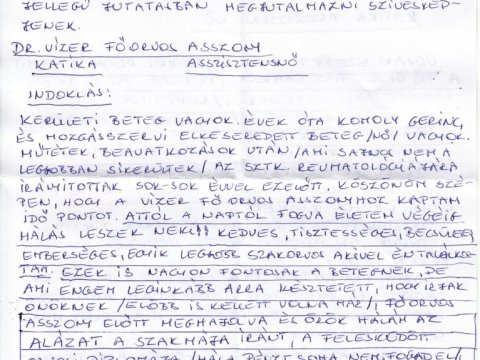 JELLEGŰ JUTATALBAN MEGJUTALMAZNI SZÍVESKED-
JENEK.
DR. VIZER FŐORVOS ASSZONY
KATIKA ASSZISZTENSNŐ
INDOKLÁS:
KERÜLETI BETEG VAGYOK. ÉVEK ÓTA KOMOLY GERINC,
ÉS MOZGÁSSZERVI ELKESEREDETT BETEG/NŐ/ VAGYOK.
MŰTÉTEK, BEAVATKOZÁSOK UTÁN /AMI SAJNOS NEM A
LEGJOBBAN SIKERÜLTEK/ AZ SZTK. REUMATOLÓGIÁJÁRA
IRÁNYÍTOTTAK SOK-SOK ÉVVEL EZELŐTT. KÖSZÖNÖM SZÉ-
PEN, HOGY A VIZER FŐORVOS ASSZONYHOZ KAPTAM
IDŐ PONTOT. ATTÓL A NAPTÓL FOGVA ÉLETEM VÉGÉIG
HÁLÁS LESZEK NEKI!! KEDVES, TISZTESSÉGES, BECSÜLETES
EMBERSÉGES, EGYIK LEGJOBB SZAKORVOS AKIVEL ÉN TALÁLKOZ-
TAM. EZEK IS NAGYON FONTOSAK A BETEGNEK, DE
AMI ENGEM LEGINKÁBB ARRA KÉSZTETETT, HOGY ÍRJAK
ÖNÖKNEK /ELŐBB IS KELLETT VOLNA MÁR/, FŐORVOS
ASSZONY ELŐTT MEGHAJOLVA ÉS ÖRÖK HÁLÁM AZ
ALÁZAT A SZAKMÁJA IRÁNT, A FELESKÜDÖTT
DIPLOMÁJA /HÁLA PÉNZT SOHA NEM FOGAD EL/